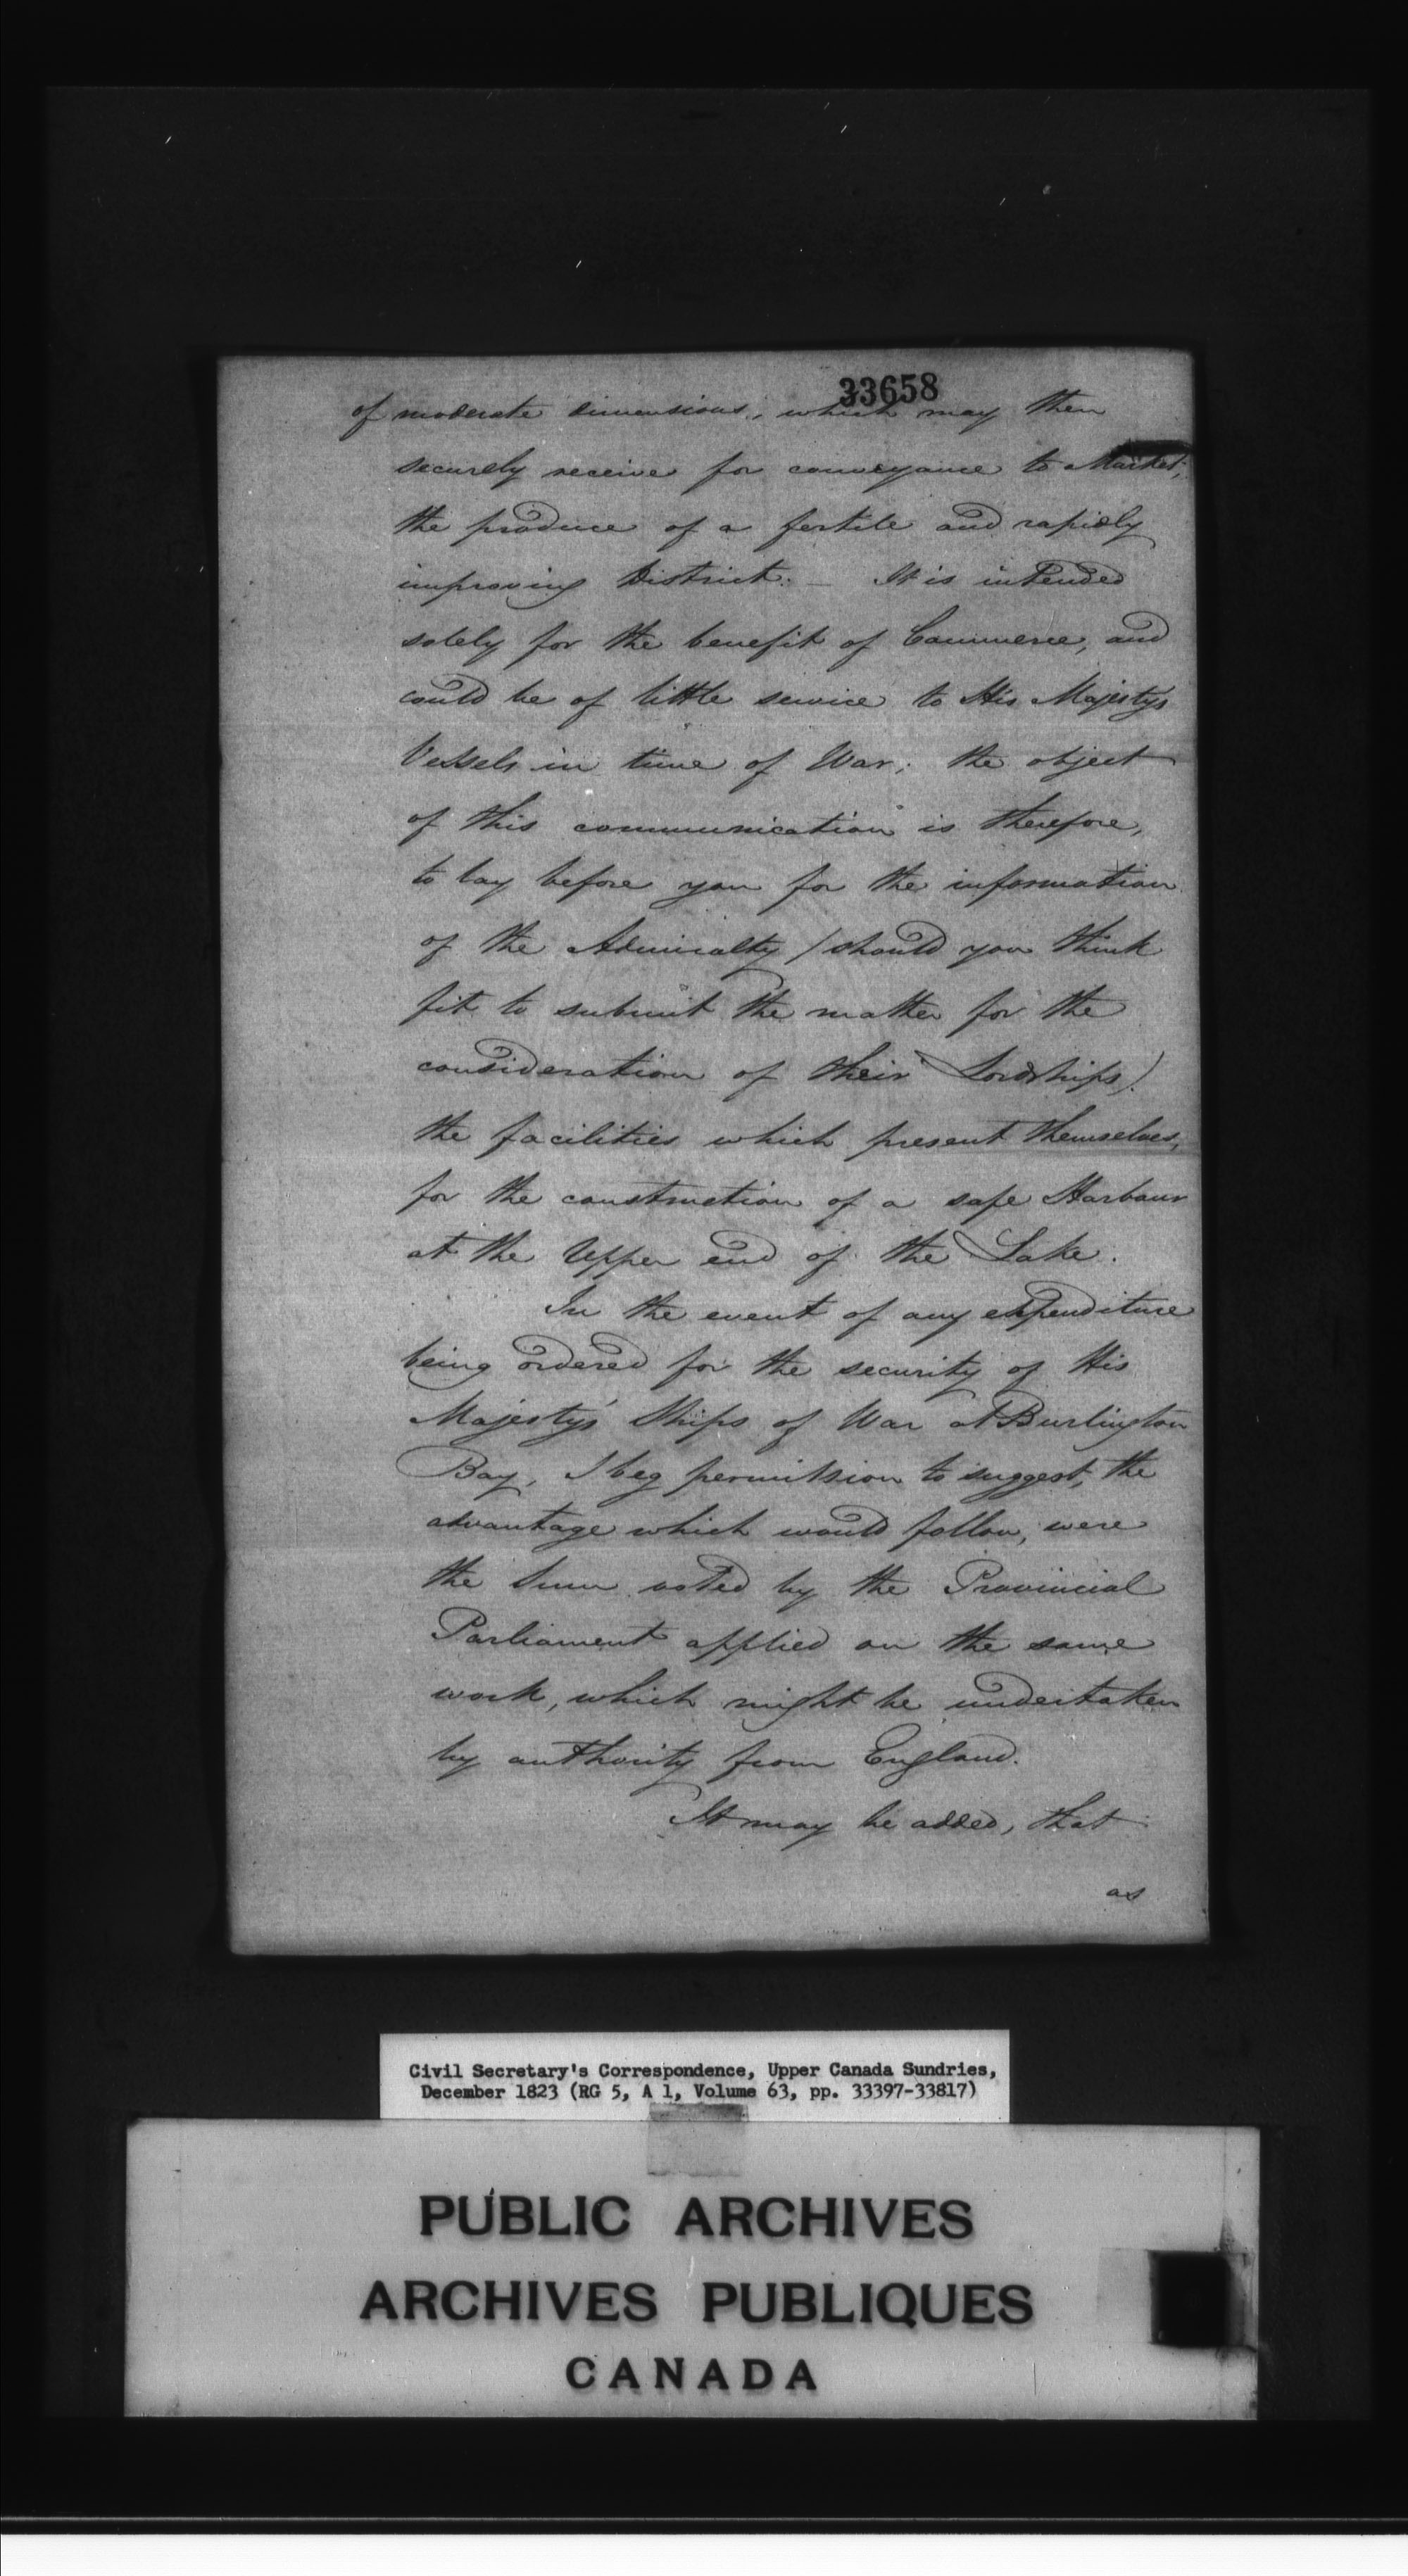 33658
of moderate dimensions, which may then
securely receive for conveyance to Market,
the produce of a fertile and rapidly
improving District. — It is intended
solely for the benefit of Commerce, and
could be of little service to His Majesty's
Vessels in time of War; the object
of this communication is therefore,
to lay before you for the information
of the Admiralty /should you think
fit to submit the matter for the
consideration of their Lordships)
the facilities which present themselves,
for the construction of a safe Harbour
at the Upper end of the Lake.
In the event of any expenditure
being ordered for the security of His
Majesty's Ships of War at Burlington
Bay, I beg permission to suggest, the
advantage which would follow, were
the Sum voted by the Provincial
Parliament applied on the same
work, which might be undertaken
by authority from England.
It may be added, that
as
Civil Secretary's Correspondence, Upper Canada Sundries,
December 1823 (RG 5, A 1, Volume 63, pp. 33397-33817)
PUBLIC ARCHIVES
ARCHIVES PUBLIQUES
CANADA